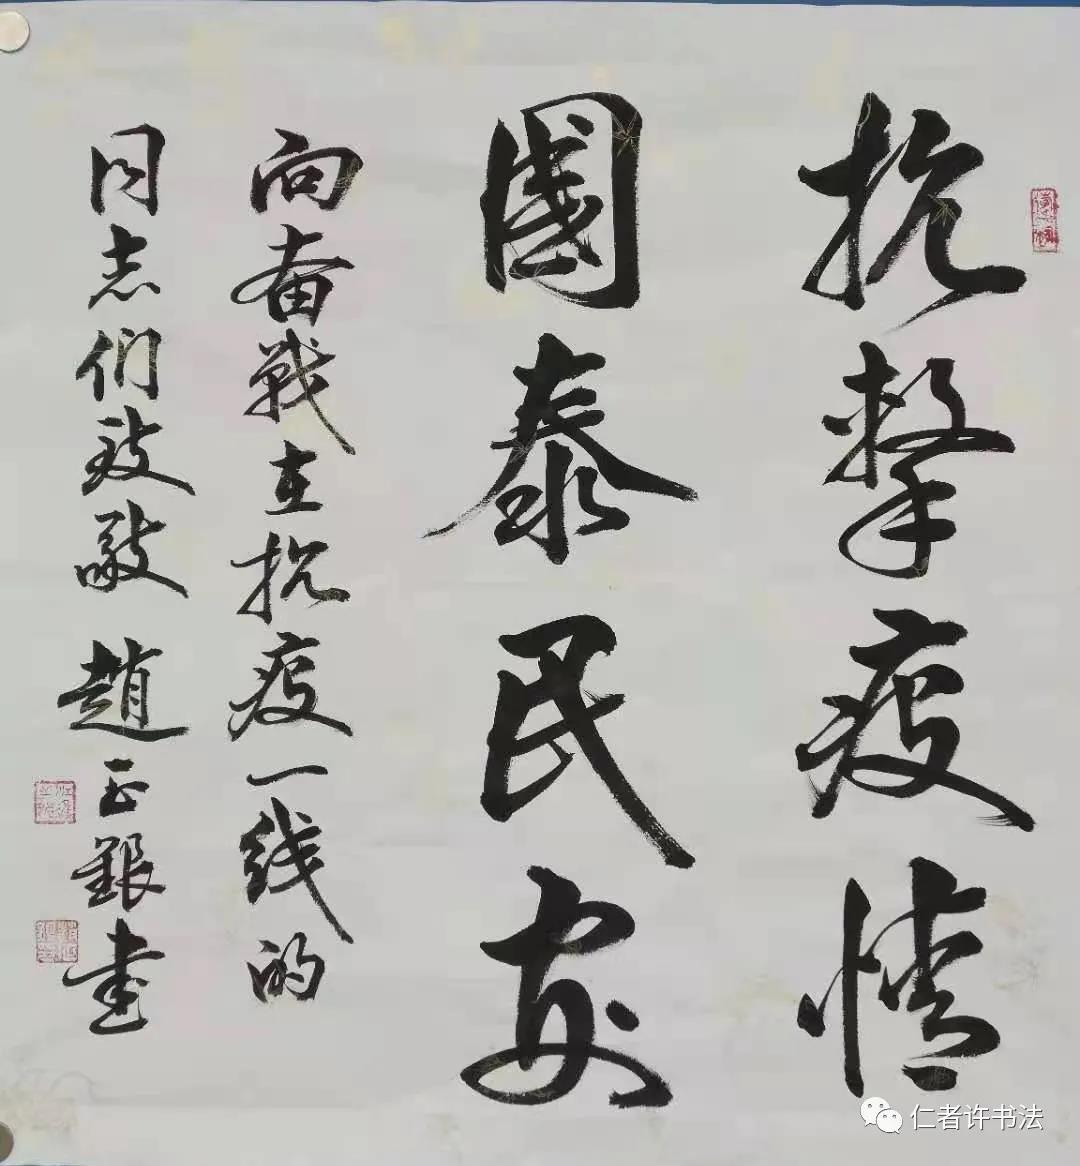 抗擊疫情
國泰民安
向奋戰在抗疫一线的
同志们致敬 趙正艱書
仁者许书法